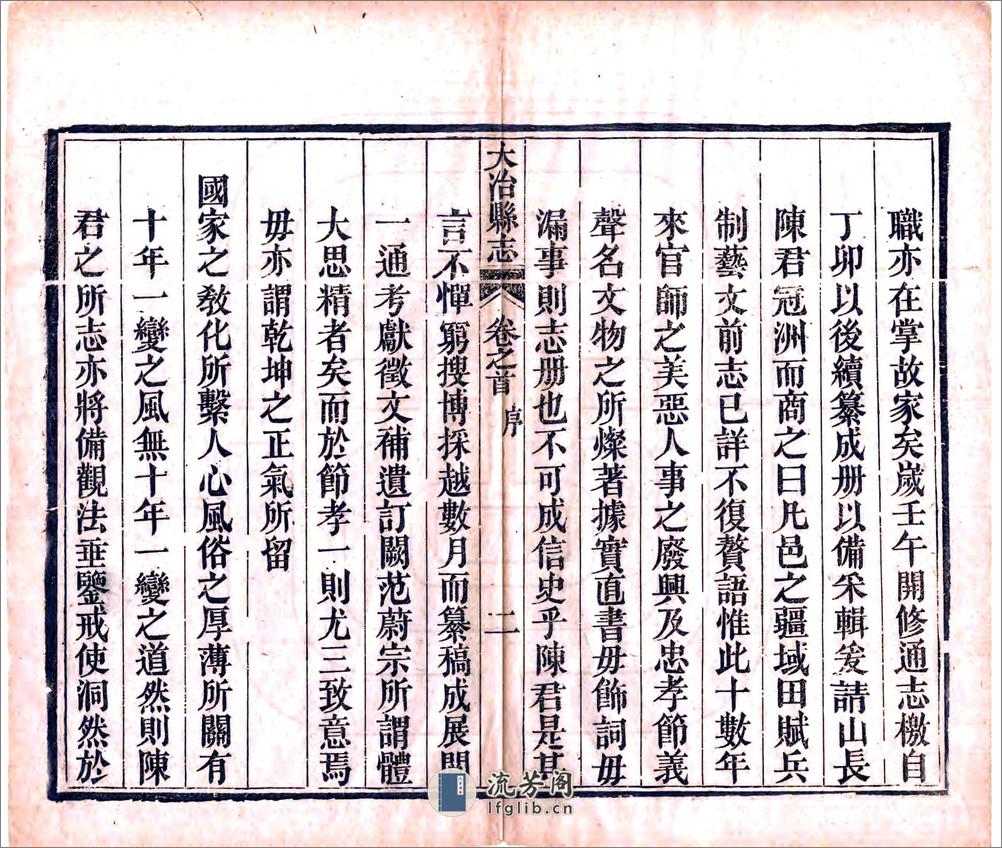 職亦在掌故家矣歲壬午開修通志檄自
丁卯以後續纂成册以備采輯爰請山長
陳君冠洲而商之曰凡邑之疆域田賦兵
制藝文前志已詳不復贅語惟此十數年
來官師之美惡人事之廢興及忠孝節義
聲名文物之所燦著據實直書毋飾詞毋
漏事則志册也不可成信史乎陳君是其
大冶縣志 卷之首 序 二
言不憚窮搜博採越數月而纂稿成展閱
一通考獻徵文補遺訂闕范蔚宗所謂體
大思精者矣而於節孝一則尤三致意焉
毋亦謂乾坤之正氣所留
國家之敎化所繫人心風俗之厚薄所關有
十年一變之風無十年一變之道然則陳
君之所志亦將備觀法垂鑒戒使洞然於
流芳閣
lfglib.cn